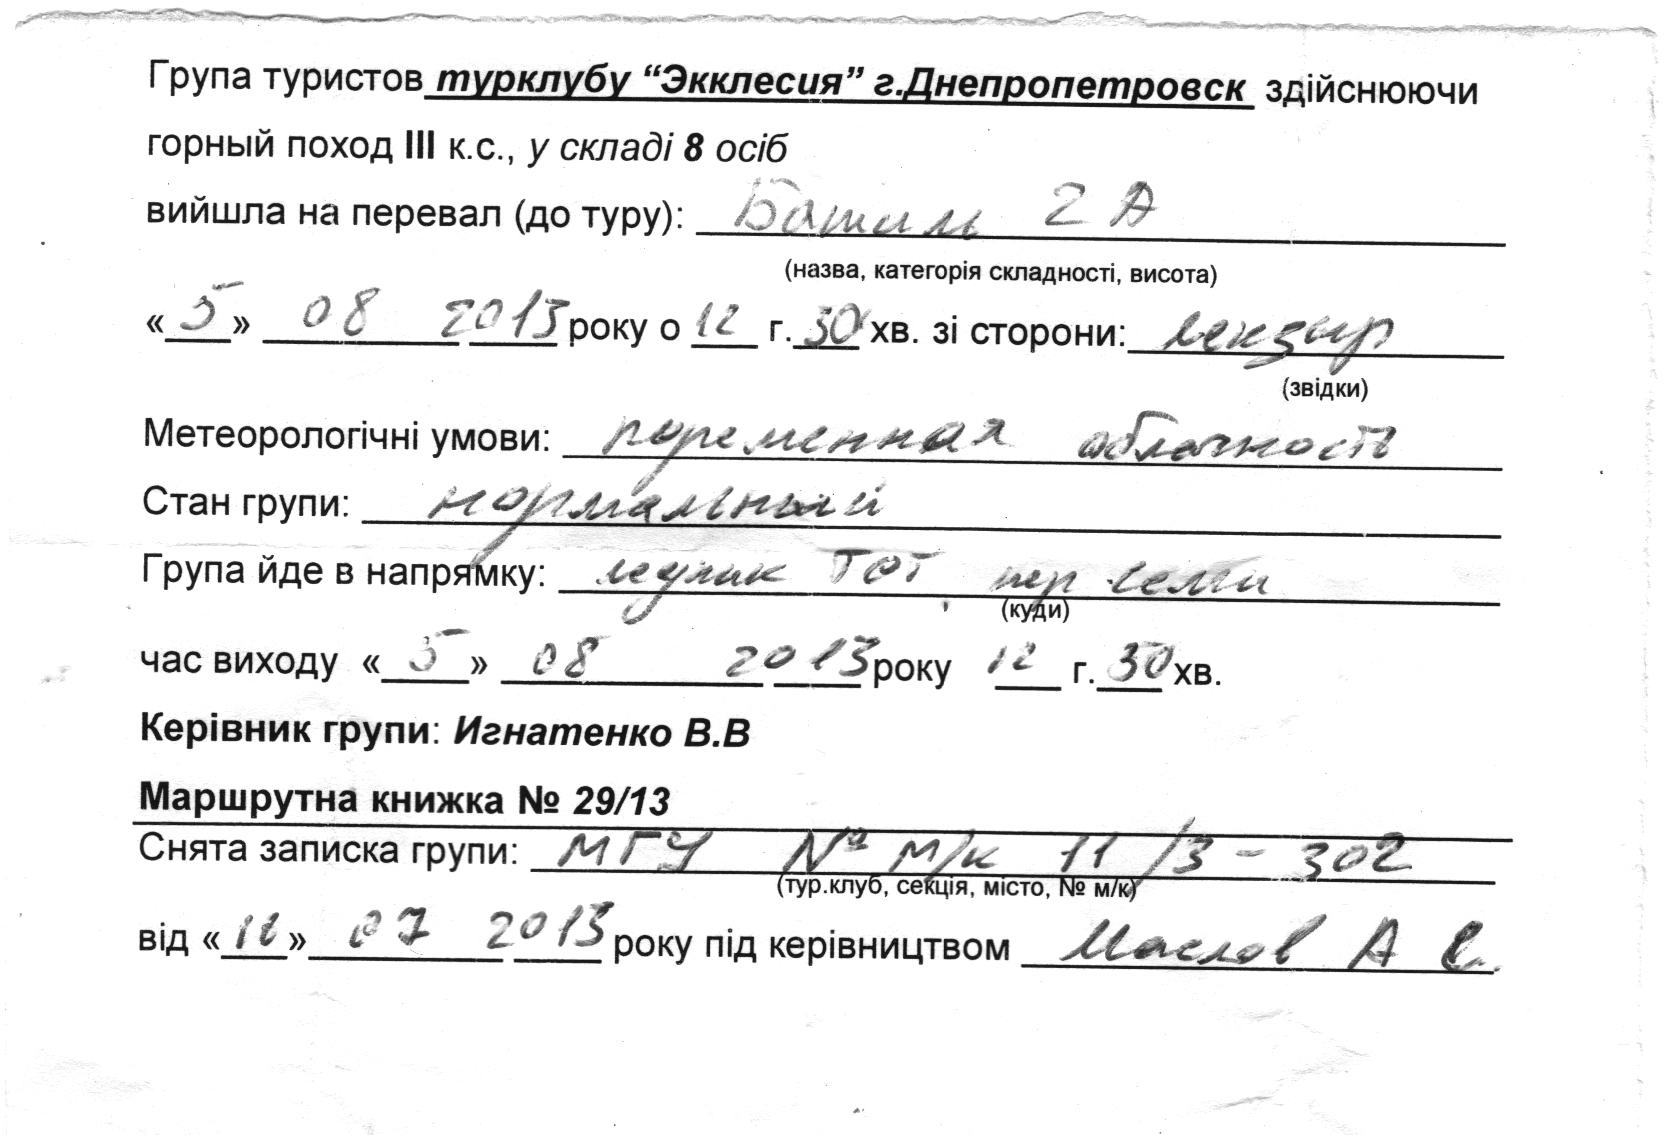 Група туристов турклубу “Экклесия” г.Днепропетровск здійснюючи
горный поход III к.с., у складі 8 осіб
вийшла на перевал (до туру): Башиль 2А
(назва, категорія складності, висота)
«5» 08 2013 року о 12 г. 30 хв. зі сторони: лекзыр
(звідки)
Метеорологічні умови: переменная облачность
Стан групи: нормальный
Група йде в напрямку: ледник ТОТ, пер Семи
(куди)
час виходу «5» 08 2013 року 12 г. 50 хв.
Керівник групи: Игнатенко В.В
Маршрутна книжка № 29/13
Снята записка групи: МГУ № м/к 11/3-302
(тур.клуб, секція, місто, № м/к)
від « » 07 2013 року під керівництвом Маслов А С.